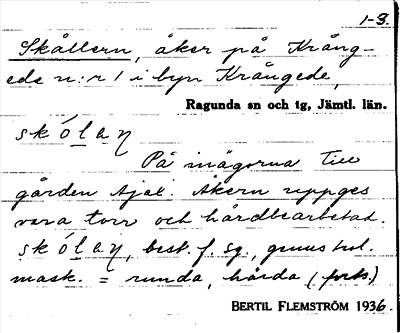 1-3.
Skållern, åker på Krång-
ede n:r 1 i byn Krångede,
Ragunda sn och tg, Jämtl. län.
skólaŋ
På inägorna till
gården Ajal. Åkern uppges
vara torr och hårdbearbetad.
skólaŋ, best. f. sg.,
mask. = runda, hårda (forts.)
BERTIL FLEMSTRÖM 1936.